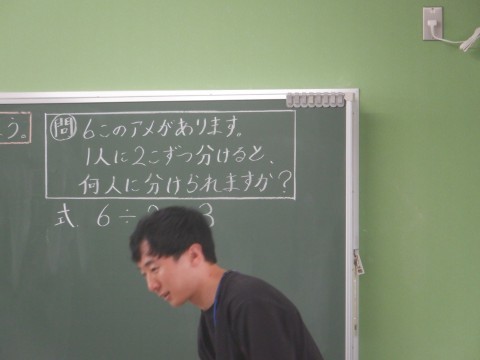 う。
問 6このアメがあります。
1人に2こずつ分けると、
何人に分けられますか?
式 6÷ 3